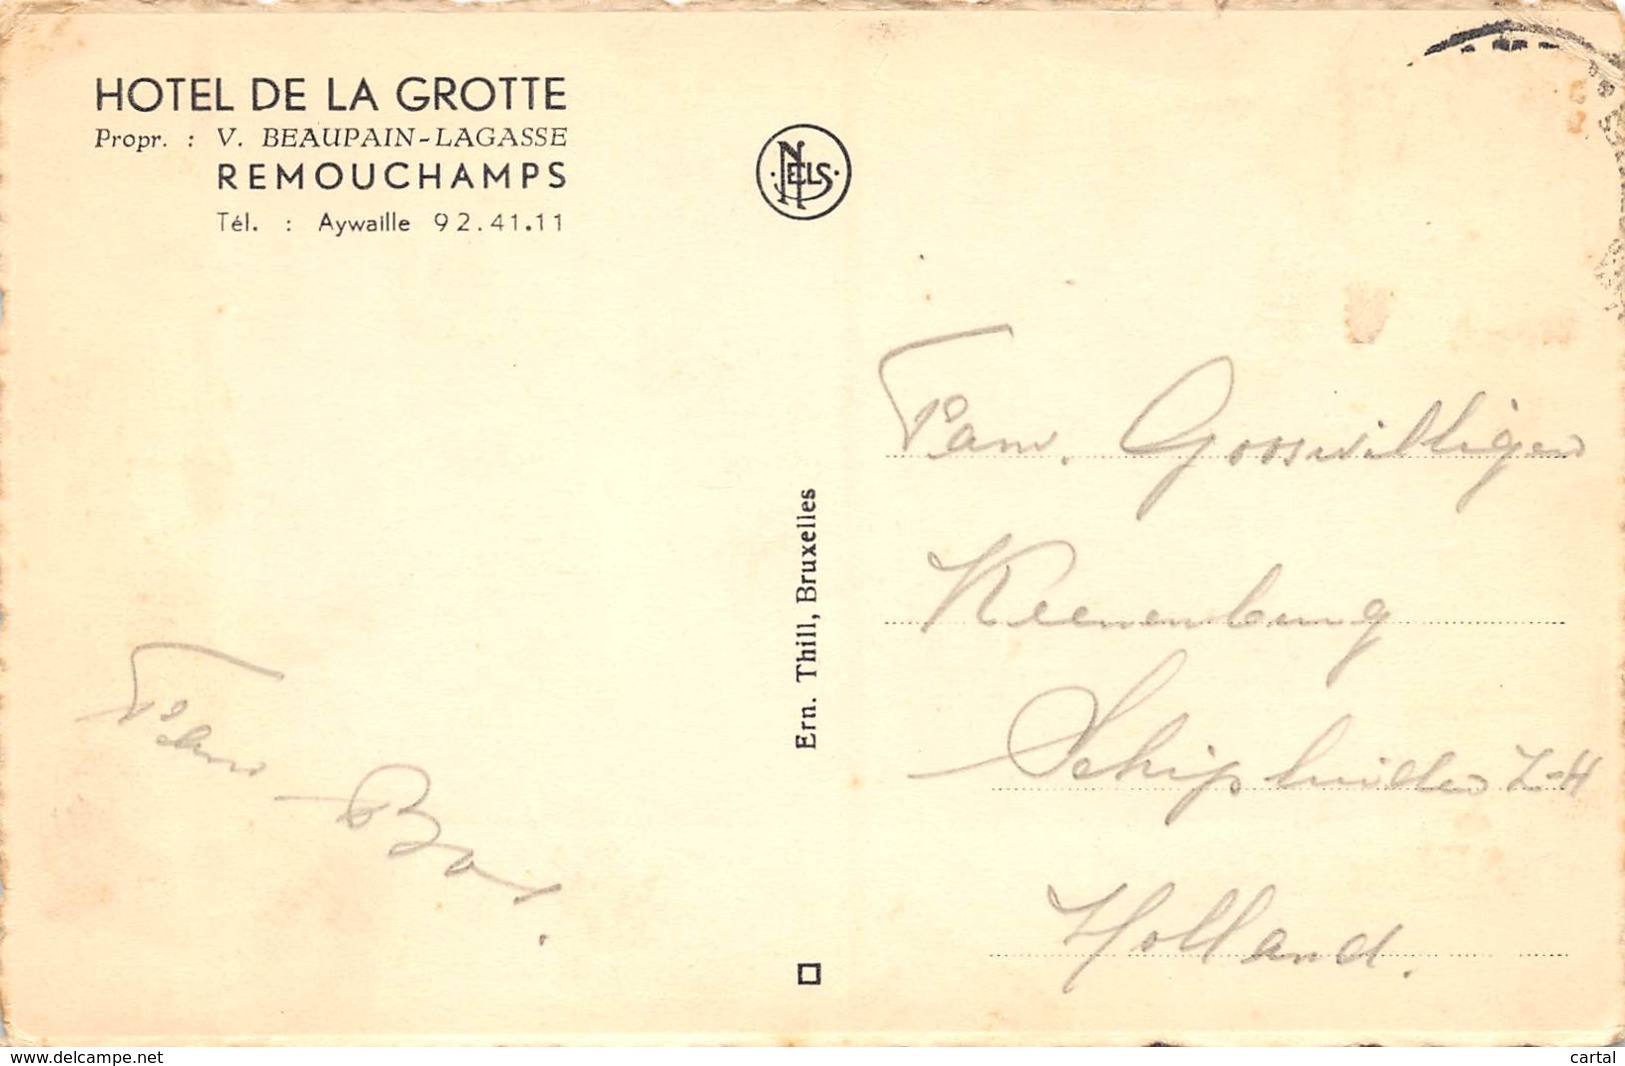 HOTEL DE LA GROTTE
Propr. : V. BEAUPAIN-LAGASSE
REMOUCHAMPS
Tél. : Aywaille 92.41.11
NELS
Ern. Thill, Bruxelles
Fam. Gooswilligen
Keenenburg
Schipluiden Z-H
Holland.
Fam
Bos.
www.delcampe.net
cartal